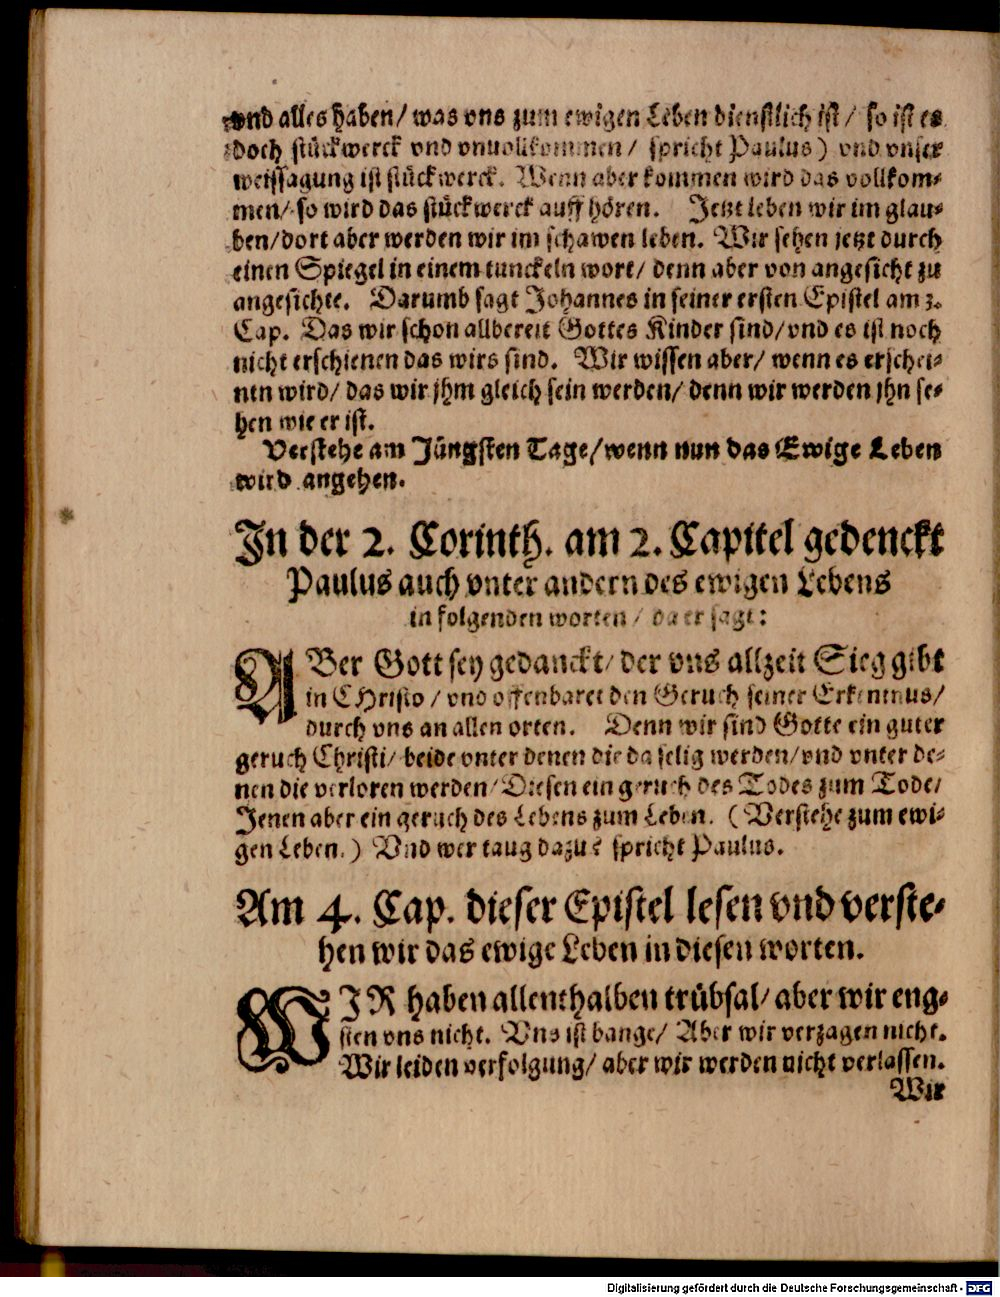 vnd alles haben/ was vns zum ewigen Leben dienstlich ist/ so ist es
doch stückwerck vnd vnuollkommen/ spricht Paulus) vnd vnser
weissagung ist stückwerck. Wenn aber kommen wird das vollkom-
men/ so wird das stückwerck auff hören. Jetzt leben wir im glau-
ben/ dort aber werden wir im schawen leben. Wir sehen jetzt durch
einen Spiegel in einem tunckeln wort/ denn aber von angesicht zu
angesichte. Darumb sagt Johannes in seiner ersten Epistel am 3.
Cap. Das wir schon allbereit Gottes Kinder sind/ vnd es ist noch
nicht erschienen das wirs sind. Wir wissen aber/ wenn es erschei-
nen wird/ das wir jhm gleich sein werden/ denn wir werden jhn se-
hen wie er ist.
Verstehe am Jüngsten Tage/ wenn nun das Ewige Leben
wird angehen.
In der 2. Corinth. am 2. Capitel gedenckt
Paulus auch vnter andern des ewigen Lebens
in folgenden worten/ da er sagt:
ABer Gott sey gedanckt/ der vns allzeit Sieg gibt
in CHristo/ vnd offenbaret den Geruch seiner Erkentnus/
durch vns an allen orten. Denn wir sind Gotte ein guter
geruch Christi/ beide vnter denen die da selig werden/ vnd vnter de-
nen die verloren werden/ Diesen ein geruch des Todes zum Tode/
Jenen aber ein geruch des Lebens zum Leben. (Verstehe zum ewi-
gen Leben.) Vnd wer taug dazu? spricht Paulus.
Am 4. Cap. dieser Epistel lesen vnd verste-
hen wir das ewige Leben in diesen worten.
WJR haben allenthalben trübsal/ aber wir eng-
sten vns nicht. Vns ist bange/ Aber wir verzagen nicht.
Wir leiden verfolgung/ aber wir werden nicht verlassen.
Wir
Digitalisierung gefördert durch die Deutsche Forschungsgemeinschaft - DFG